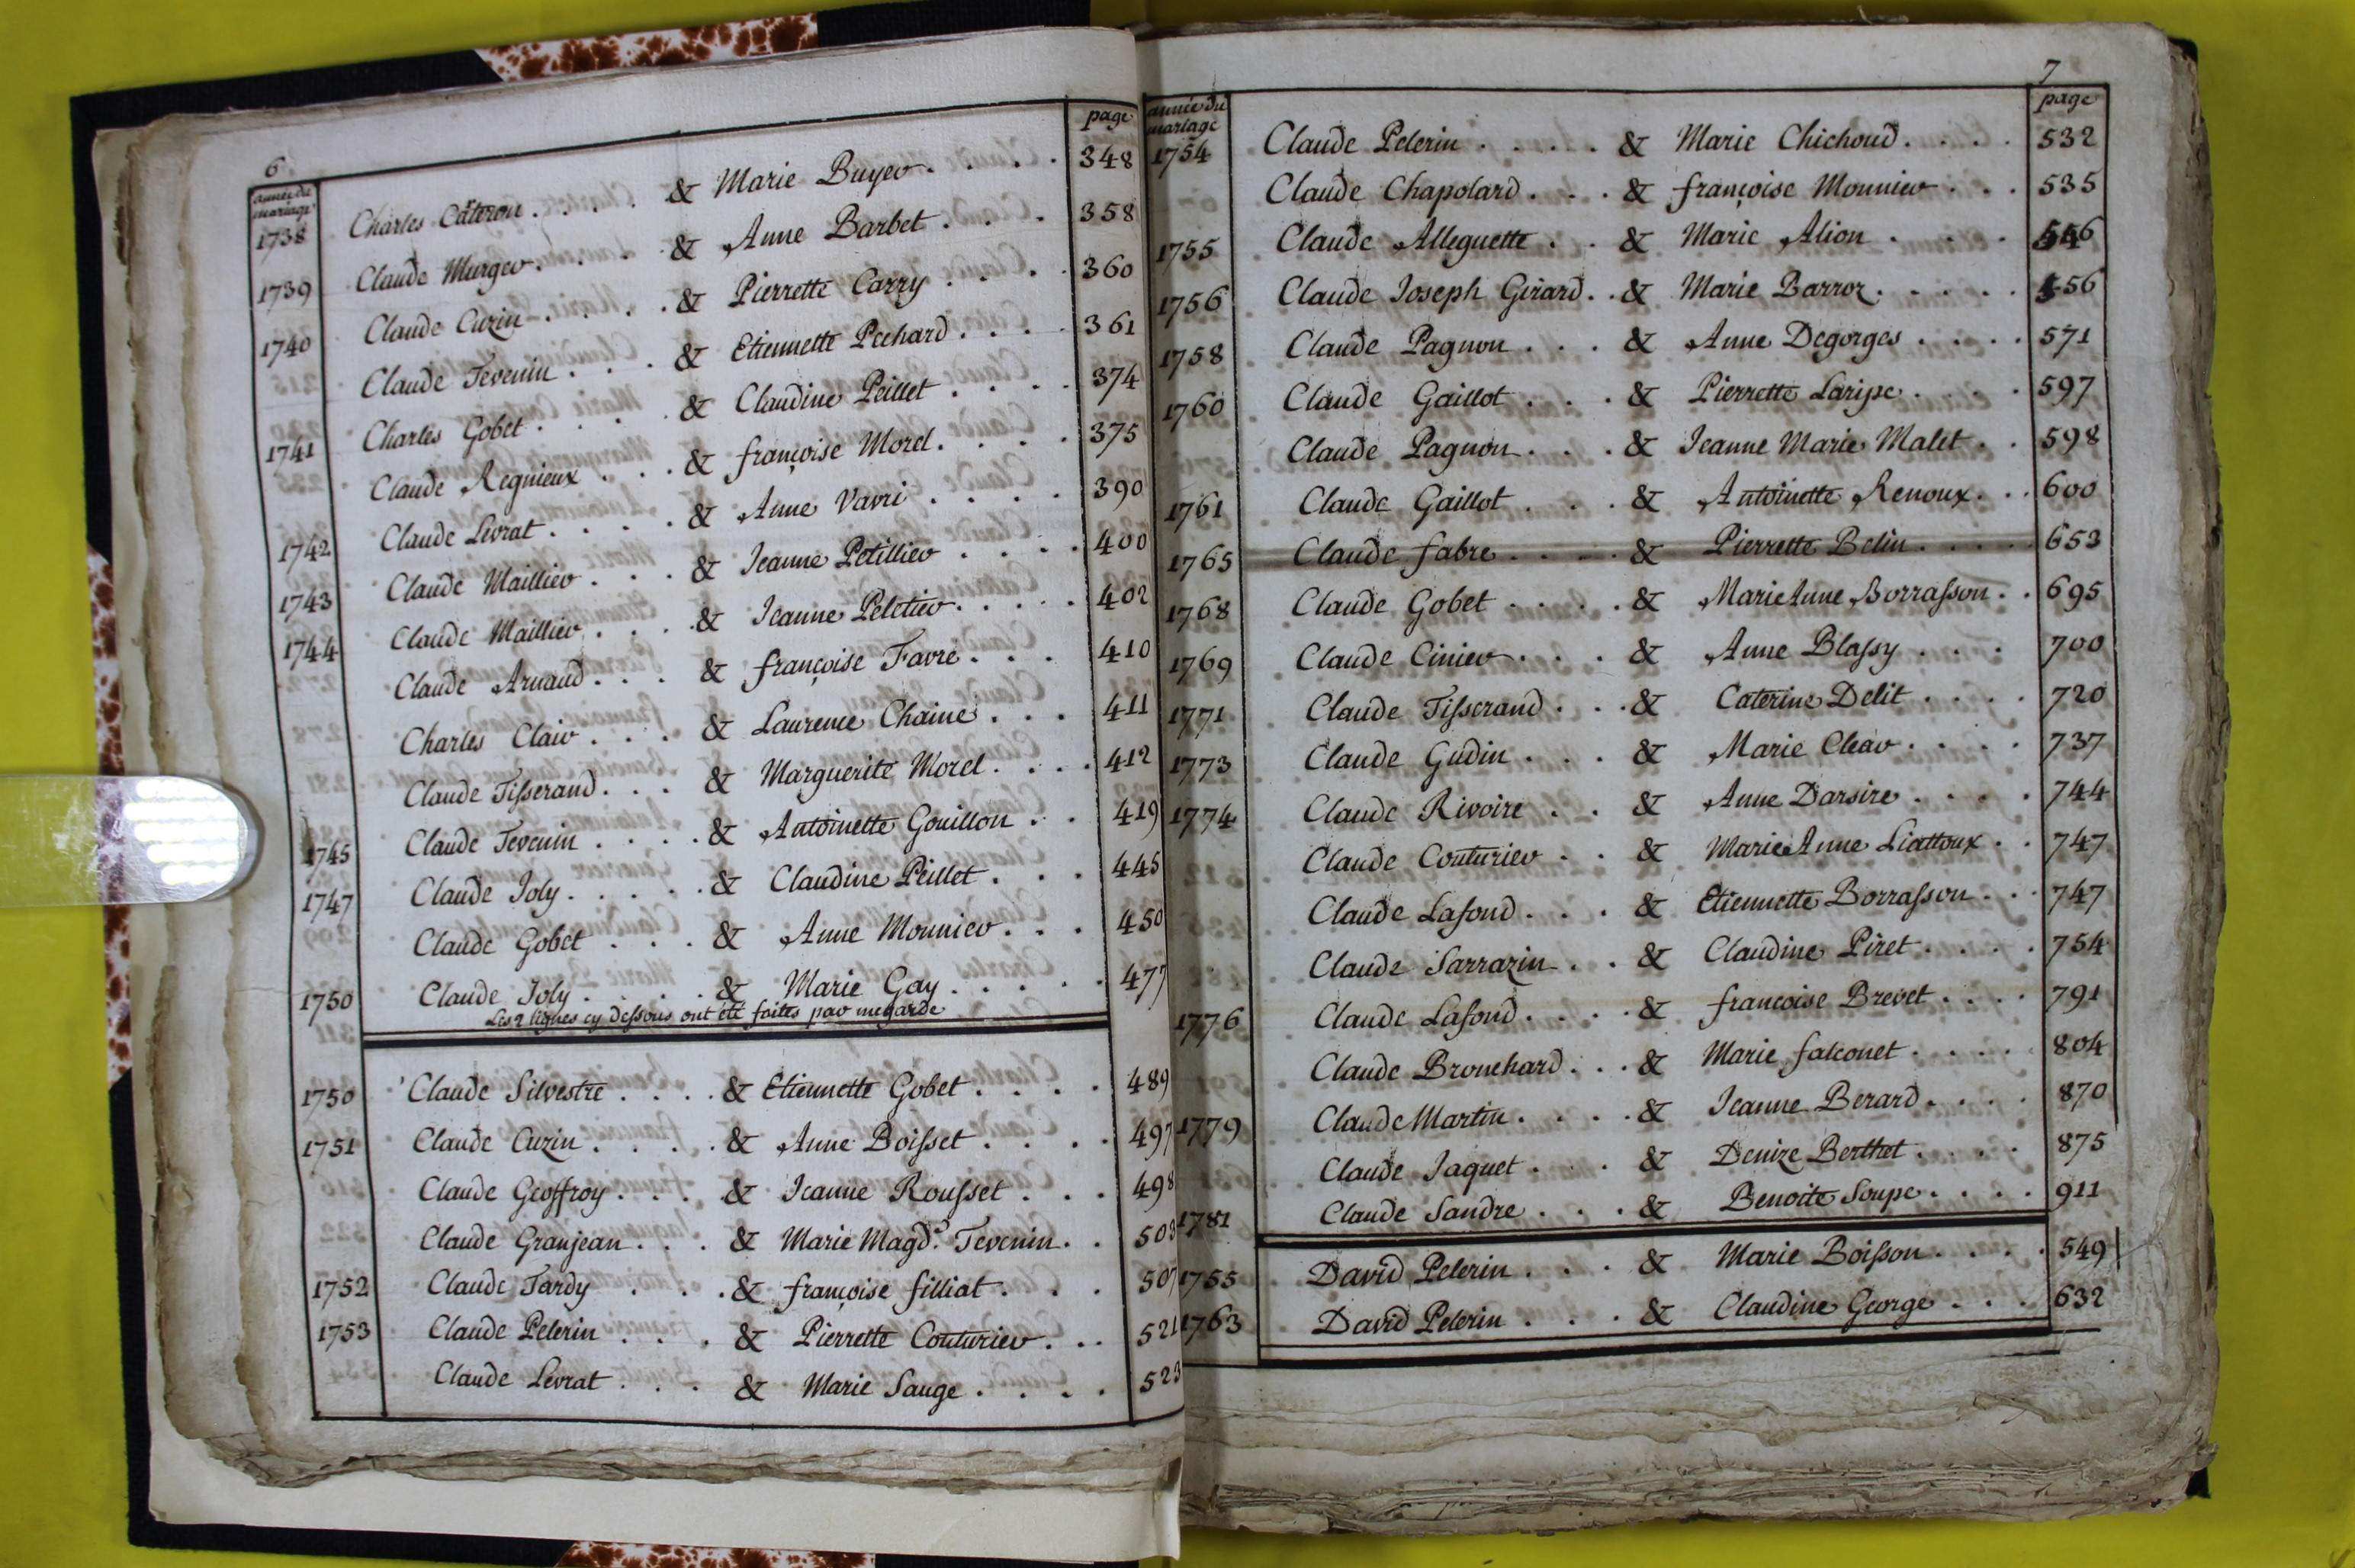 6
année du mariage page
1738 Charles Câteron . . . . & Marie Buyer . . . . 348
1739 Claude Murger . . . . & Anne Barbet . . . . 358
1740 Claude Curin . . . . & Pierrette Carry . . . . 360
Claude Tevenin . . . . & Etiennette Pechard . . . . 361
1741 Charles Gobet . . . . & Claudine Peillet . . . . 374
Claude Regnieux . . . & françoise Morel . . . . 375
1742 Claude Levrat . . . . & Anne Vavri . . . . 390
1743 Claude Maillier . . . & Jeanne Petillier . . . . 400
1744 Claude Maillier . . . . & Jeanne Peletier . . . . 402
Claude Arnaud . . . & françoise Favre . . . 410
Charles Clair . . . & Laurence Chaine . . . 411
Claude Tisserand . . . & Marguerite Morel . . . . 412
1745 Claude Tevenin . . . . & Antoinette Gouillon . . 419
1747 Claude Joly . . . . . & Claudine Peillet . . . 445
Claude Gobet . . . & Anne Monnier . . . 450
1750 Claude Joly . . . . & Marie Gay . . . . . 477
Les 2 lignes cy dessous ont été faites par megarde
1750 Claude Silvestre . . . . & Etiennette Gobet . . . . 489
1751 Claude Curin . . . . & Anne Boisset . . . . 497
Claude Geoffroy . . . & Jeanne Rousset . . . 498
Claude Granjean . . . & Marie Magd.e Tevenin . . 503
1752 Claude Tardy . . . & françoise filliat . . . 507
1753 Claude Pelerin . . . & Pierrette Couturier . . . 521
Claude Levrat . . . & Marie Sauge . . . . 523
7
année du mariage page
1754 Claude Pelerin . . . . & Marie Chichoud . . . . 532
Claude Chapolard . . . & françoise Monnier . . . 535
1755 Claude Alleguette . . & Marie Alion . . . . 546
1756 Claude Joseph Girard . . & Marie Barroz . . . . . 556
1758 Claude Pagnon . . . & Anne Degorges . . . . 571
1760 Claude Gaillot . . . & Pierrette Laripe . . . . 597
Claude Pagnon . . . & Jeanne Marie Malet . . 598
1761 Claude Gaillot . . . & Antoinette Renoux . . . 600
1765 Claude fabre . . . . & Pierrette Belin . . . . . 653
1768 Claude Gobet . . . . & Marie Anne Borrasson . . 695
1769 Claude Cinier . . . & Anne Blassy . . . 700
1771 Claude Tisserand . . . & Caterine Delit . . . . 720
1773 Claude Gudin . . . & Marie Clear . . . . 737
1774 Claude Rivoire . . & Anne Darsire . . . . 744
Claude Couturier . . & Marie Anne Liattoux . . 747
Claude Lafond . . . & Etiennette Borrasson . . 747
Claude Sarrazin . . & Claudine Piret . . . . 754
1776 Claude Lafond . . . . & francoise Brevet . . . . 791
Claude Brouchard . . . & Marie falconet . . . . 804
1779 Claude Martin . . . . & Jeanne Berard . . . . 870
Claude Jaquet . . . & Denize Berthet . . . . 875
1781 Claude Sandre . . . & Benoite Soupe . . . . 911
1755 David Pelerin . . . & Marie Boisson . . . . 549
1763 David Pelerin . . . & Claudine George . . . 632